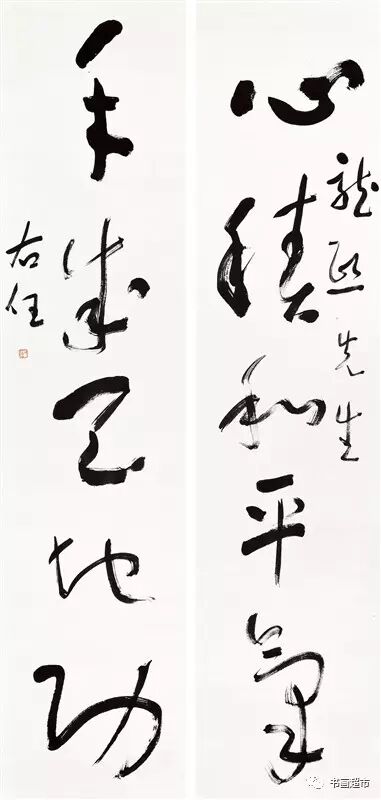 心積和平氣
龍熙先生
手成天地功
右任
书画超市